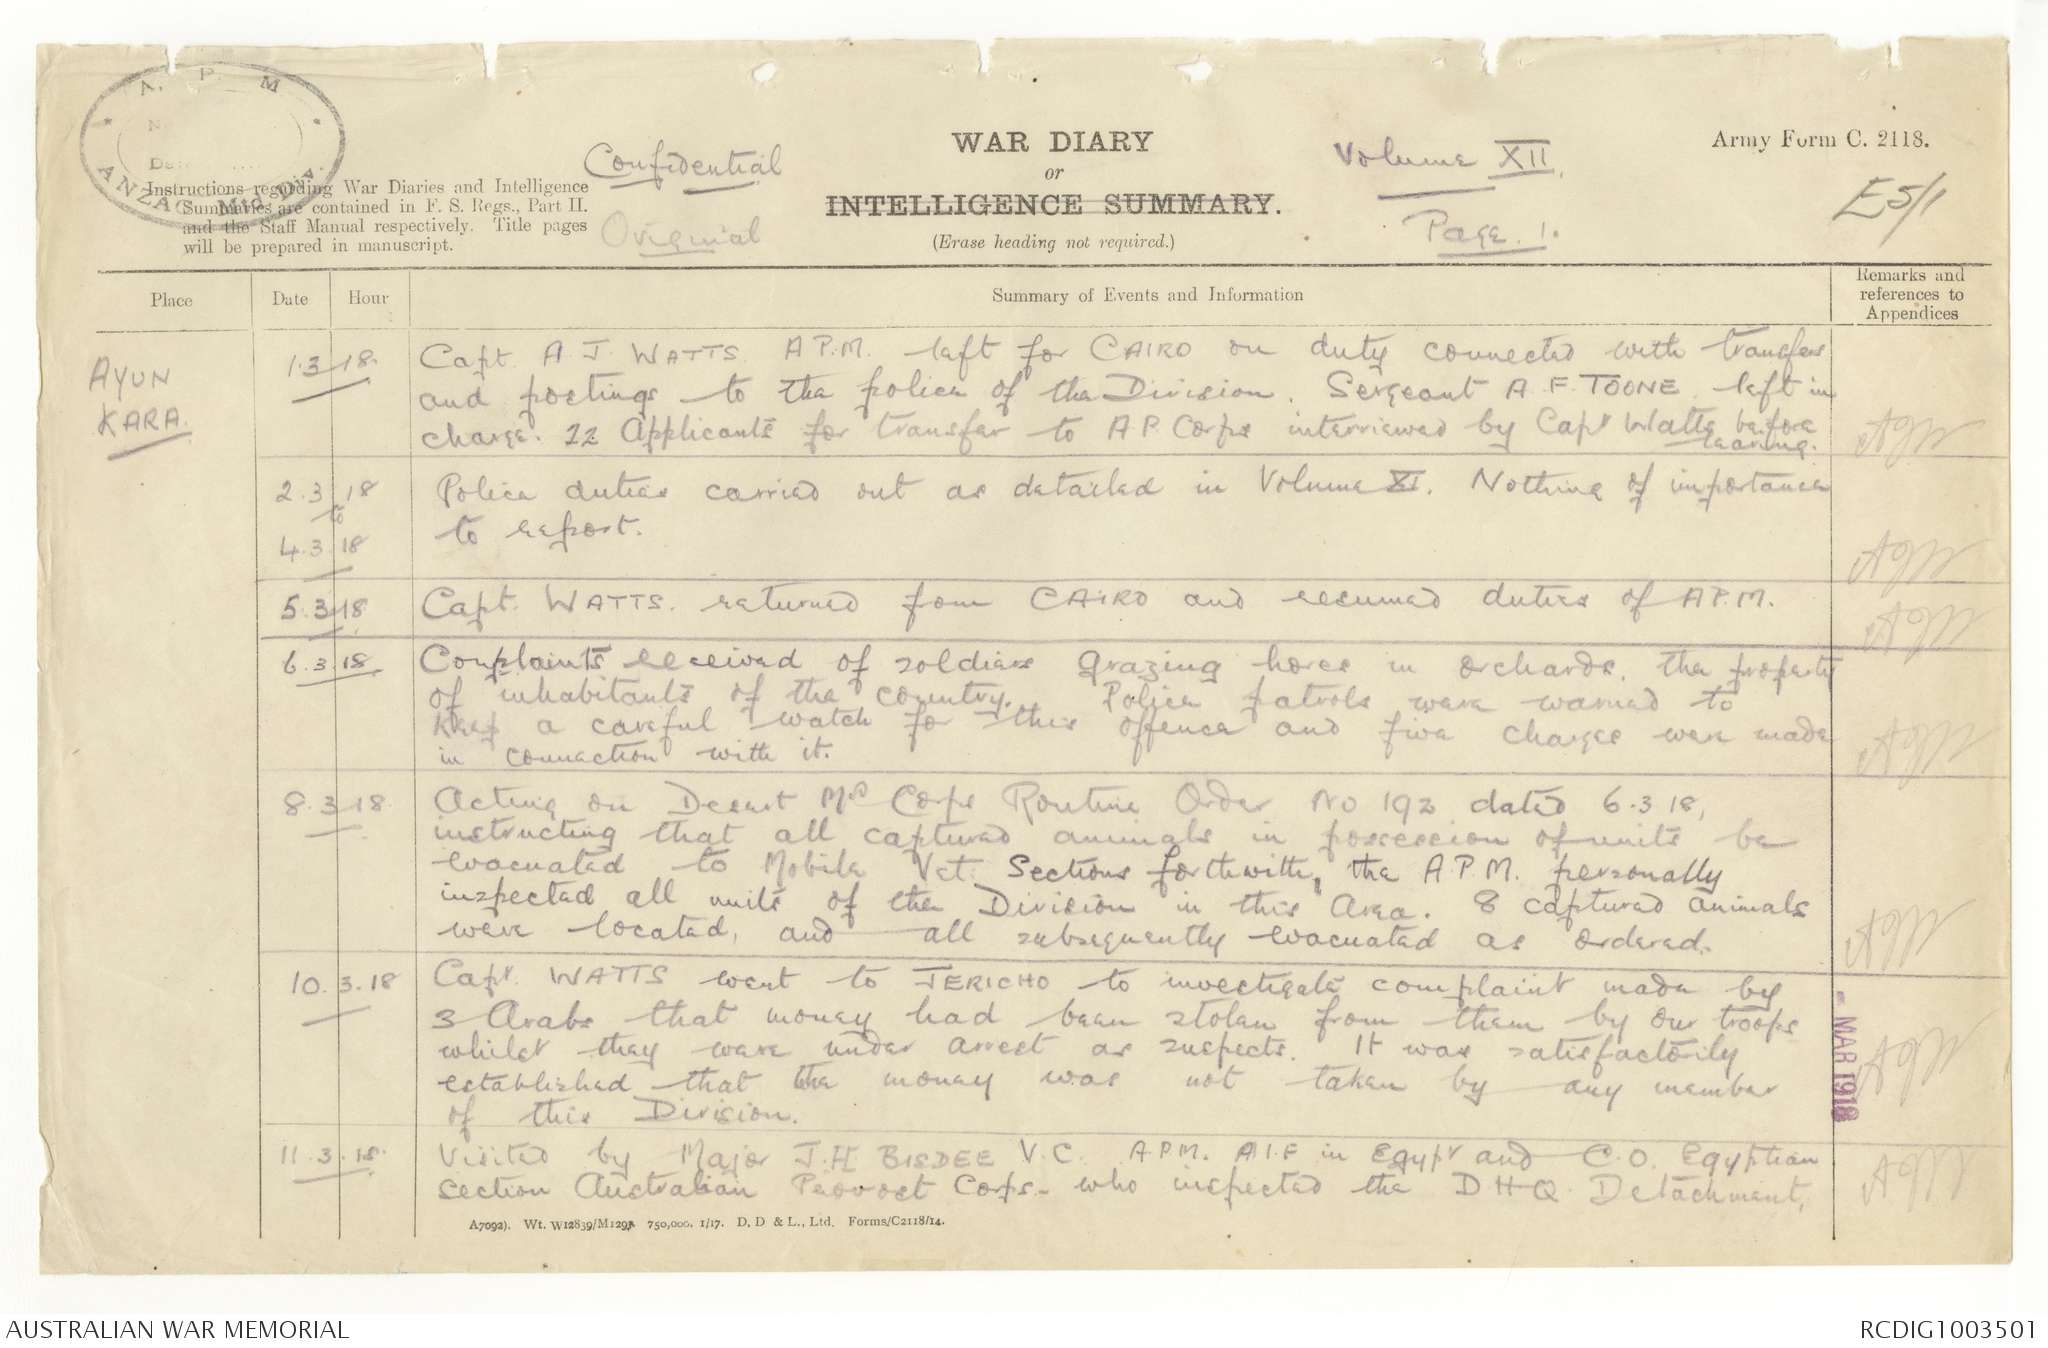 A. P. M
ANZAC Mtd Div.
Confidential
Original
WAR DIARY
or
INTELLIGENCE SUMMARY.
(Erase heading not required.)
Volume XII.
Page. 1.
Army Form C. 2118.
E5/1
Instructions regarding War Diaries and Intelligence
Summaries are contained in F. S. Regs., Part II.
and the Staff Manual respectively. Title pages
will be prepared in manuscript.
Place
Date
Hour
Summary of Events and Information
Remarks and
references to
Appendices
AYUN
KARA.
1.3.18.
Capt. A J. WATTS A P.M. left for CAIRO on duty connected with transfers
and postings to the police of the Division. Sergeant A.F. TOONE left in
charge. 12 Applicants for transfer to A P. Corps interviewed by Capt Watts before
leaving.
AJW
2.3.18
to
4.3.18
Police duties carried out as detailed in Volume XI. Nothing of importance
to report.
AJW
5.3.18
Capt. WATTS. returned from CAIRO and resumed duties of A P.M.
AJW
6.3.18.
Complaints received of soldiers grazing hores in orchards, the property
of inhabitants of the country. Police patrols were warned to
keep a careful watch for this offence and five charges were made
in connection with it.
AJW
8.3.18.
Acting on Desert Md Corps Routine Order No 192 dated 6.3.18,
instructing that all captured animals in possession of units be
evacuated to Mobile Vet. Sections forthwith, the A.P.M. personally
inspected all units of the Division in this Area. 8 captured animals
were located, and all subsequently evacuated as ordered.
AJW
10.3.18
Capt. WATTS went to JERICHO to investigate complaint made by
3 Arabs that money had been stolen from them by our troops
whilst they were under arrest as suspects. It was satisfactorily
established that the money was not taken by any member
of this Division.
AJW
- MAR 1918
11.3.18.
Visited by Major J.H BISDEE V.C. A.P.M. A.I.F in Egypt and C.O. Egyptian
Section Australian Provost Corps. who inspected the D H Q Detachment,
AJW
A7092). Wt. W12839/M1297 750,000. 1/17. D. D & L., Ltd. Forms/C2118/14.
AUSTRALIAN WAR MEMORIAL
RCDIG1003501